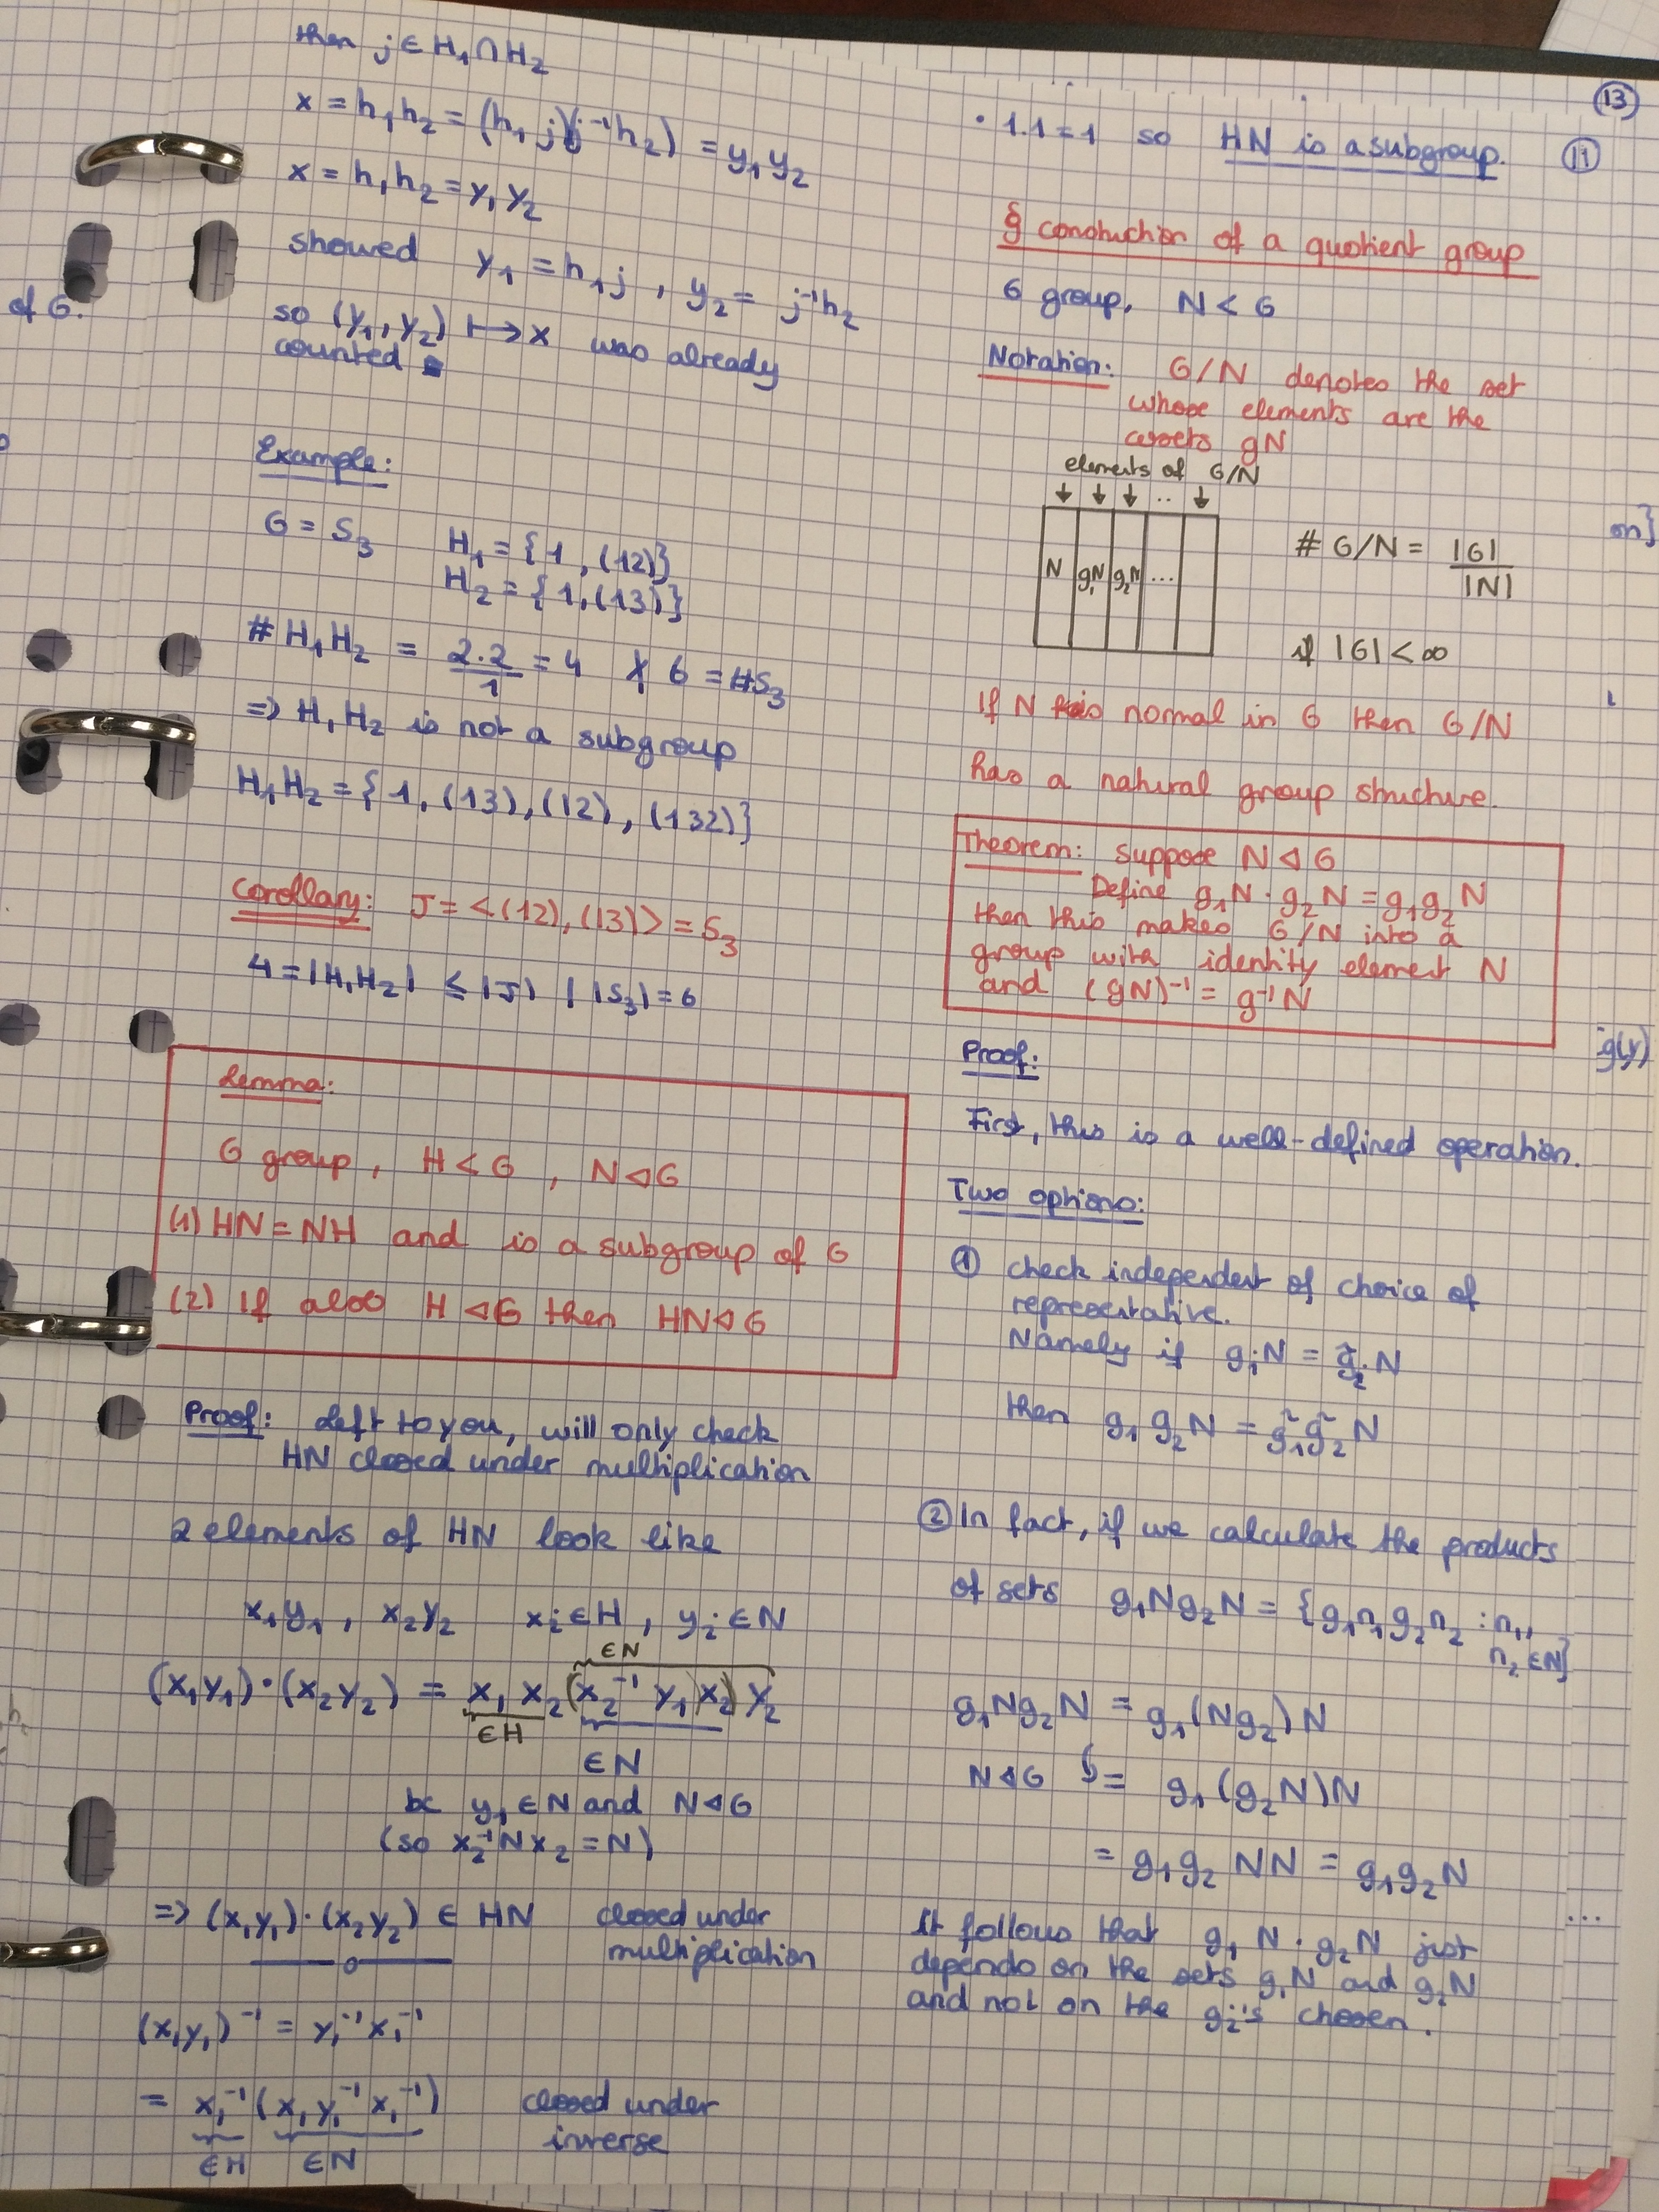 then j ∈ H₁ ∩ H₂
x = h₁h₂ = (h₁j)(j⁻¹h₂) = y₁y₂
x = h₁h₂ = y₁y₂
showed y₁ = h₁j , y₂ = j⁻¹h₂
so (y₁, y₂) ↦ x was already
counted
of G.
Example:
G = S₃ H₁ = {1, (12)}
H₂ = {1, (13)}
# H₁H₂ = 2.2/1 = 4 ∤ 6 = #S₃
=> H₁H₂ is not a subgroup
H₁H₂ = {1, (13), (12), (132)}
Corollary: J = <(12), (13)> = S₃
4 = |H₁H₂| ≤ |J| | |S₃| = 6
Lemma:
G group, H < G , N ⊲ G
(1) HN = NH and is a subgroup of G
(2) If also H ⊲ G then HN ⊲ G
Proof: Left to you, will only check
HN closed under multiplication
2 elements of HN look like
x₁y₁ , x₂y₂ xᵢ ∈ H , yᵢ ∈ N
∈N
(x₁y₁)·(x₂y₂) = x₁ x₂ (x₂⁻¹ y₁)x₂) y₂
∈H
∈ N
bc y₁ ∈ N and N ⊲ G
(so x₂⁻¹Nx₂ = N)
=> (x₁y₁)·(x₂y₂) ∈ HN closed under
multiplication
(x₁y₁)⁻¹ = y₁⁻¹x₁⁻¹
= x₁⁻¹ (x₁ y₁⁻¹ x₁⁻¹) closed under
inverse
∈H ∈N
13
· 1.1 = 1 so HN is a subgroup. 11
§ construction of a quotient group
G group, N < G
Notation: G/N denotes the set
whose elements are the
cosets gN
elements of G/N
↓ ↓ ↓ .. ↓
N g₁N g₂N ...
# G/N = |G|/|N|
if |G| < ∞
If N is normal in G then G/N
has a natural group structure.
Theorem: Suppose N ⊲ G
Define g₁N · g₂N = g₁g₂N
then this makes G/N into a
group with identity element N
and (gN)⁻¹ = g⁻¹N
Proof:
First, this is a well-defined operation.
Two options:
① check independent of choice of
representative.
Namely if gᵢN = g̃ᵢN
then g₁g₂N = g̃₁g̃₂N
② In fact, if we calculate the products
of sets g₁Ng₂N = {g₁n₁g₂n₂ : n₁,
n₂ ∈ N}
g₁Ng₂N = g₁(Ng₂)N
N ⊲ G = g₁(g₂N)N
= g₁g₂ NN = g₁g₂N
It follows that g₁N · g₂N just
depends on the sets g₁N and g₂N
and not on the gᵢ's chosen.
on}
g(y)
...